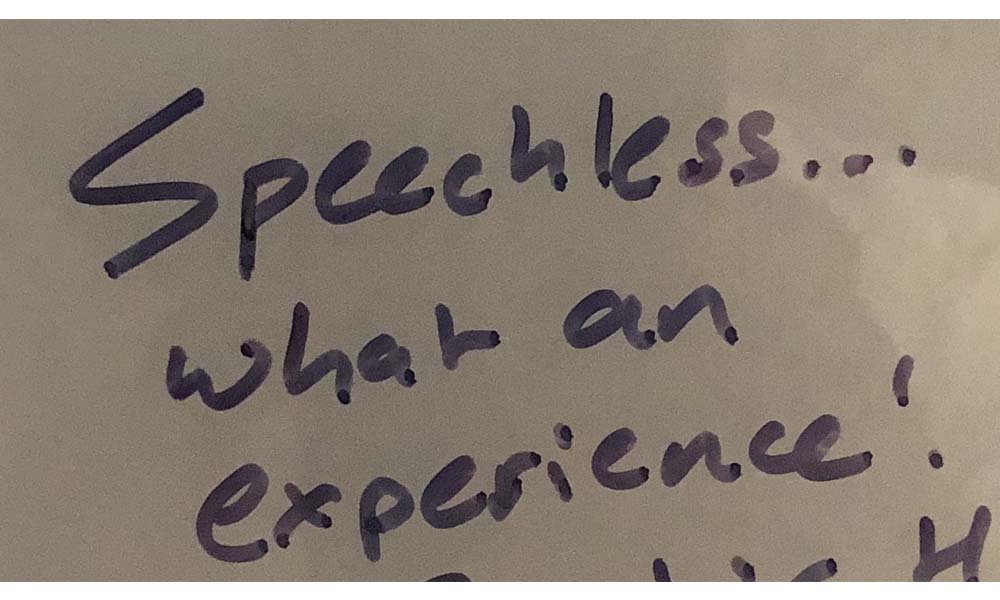 Speechless...
what an
experience!